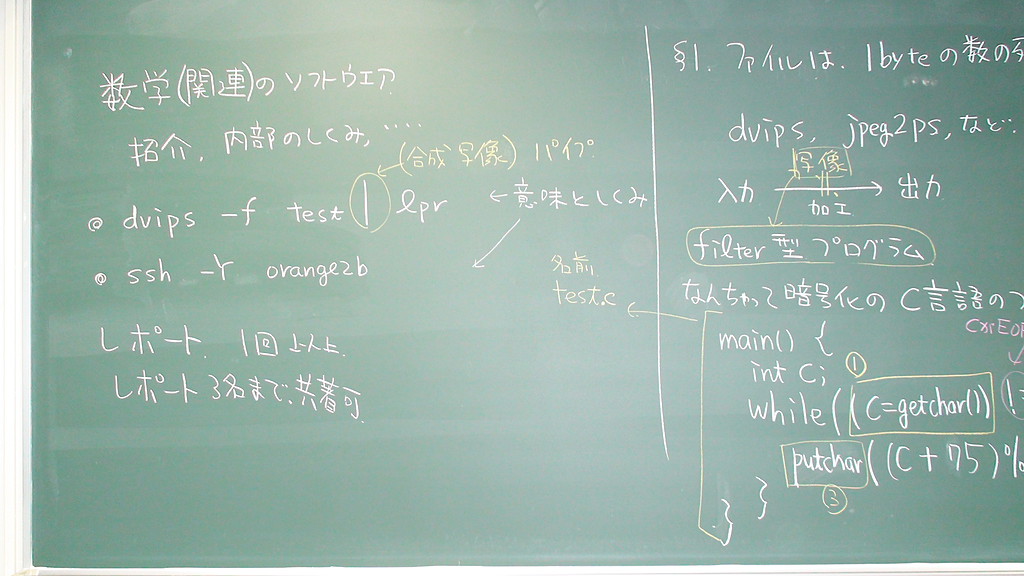 数学(関連)のソフトウエア
紹介, 内部のしくみ, ....
(合成写像) パイプ
dvips -f test | lpr ← 意味としくみ
ssh -Y orange2b
レポート. 1回以上.
レポート3名まで、共著可
§1. ファイルは. 1byteの数の列
dvips, jpeg2ps, など.
写像
入力 → 出力
加工
filter型プログラム
名前
test.c
なんちゃって暗号化のC言語の
main() {
int c;
①
while ((c=getchar()) !=
putchar((c+75)%
③
}
}